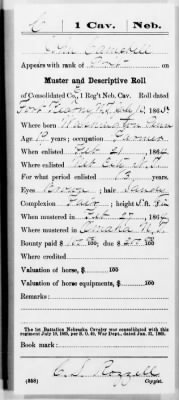 C | 1 Cav. | Neb.
Campbell
Appears with rank of
Muster and Descriptive Roll
of Consolidated Co. , 1 Reg't Neb. Cav. Roll dated
Fort Kearny N.T. 1865
Where born
Age 19 years; occupation
When enlisted Feb 21 , 1864
Where enlisted
For what period enlisted 3 years.
Eyes Brown ; hair Sandy
Complexion Fair ; height 5 ft. in.
When mustered in Feb 27 , 1864
Where mustered in Omaha N.T.
Bounty paid $ 100; due $ 100
Where credited
Valuation of horse, $ 100
Valuation of horse equipments, $ 100
Remarks:
The 1st Battalion Nebraska Cavalry was consolidated with this
regiment July 10, 1865, per S. O. 40, War Dep't., dated Jan. 31, 1865.
Book mark:
(358)
Copyist.